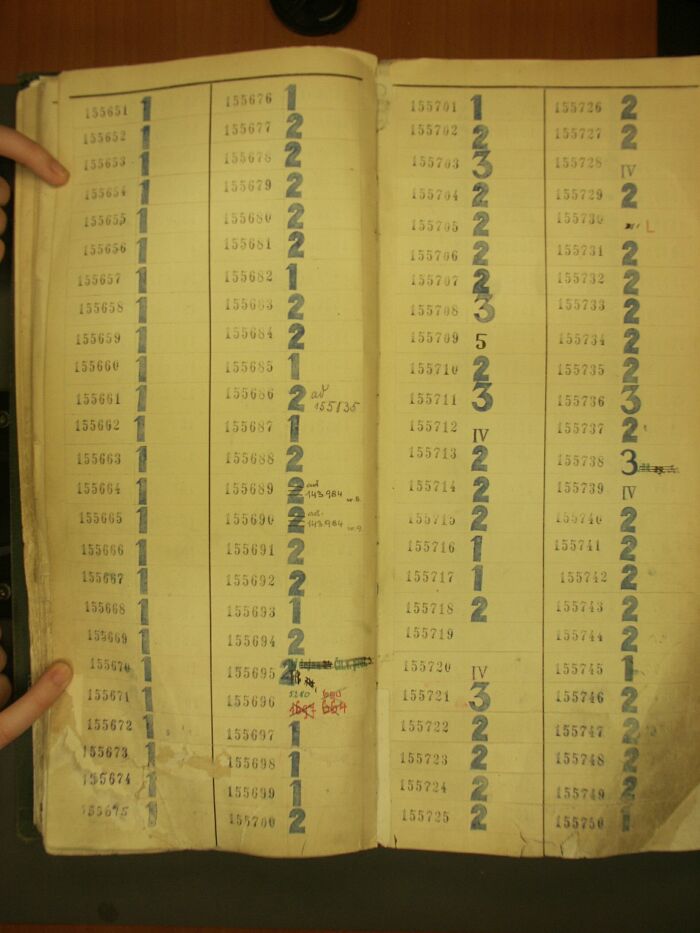 155651 1
155652 1
155653 1
155654 1
155655 1
155656 1
155657 1
155658 1
155659 1
155660 1
155661 1
155662 1
155663 1
155664 1
155665 1
155666 1
155667 1
155668 1
155669 1
155670 1
155671 1
155672 1
155673 1
155674 1
155675 1
155676 1
155677 2
155678 2
155679 2
155680 2
155681 2
155682 1
155683 2
155684 2
155685 1
155686 2 ad
155135
155687 1
155688 2
155689 2 ad
143984
155690 2 ad.
143984
155691 2
155692 2
155693 1
155694 2
155695 2
155696
155697 1
155698 1
155699 1
155700 2
155701 1
155702 2
155703 3
155704 2
155705 2
155706 2
155707 2
155708 3
155709 5
155710 2
155711 3
155712 IV
155713 2
155714 2
155715 2
155716 1
155717 1
155718 2
155719
155720 IV
155721 3
155722 2
155723 2
155724 2
155725 2
155726 2
155727 2
155728 IV
155729 2
155730 L
155731 2
155732 2
155733 2
155734 2
155735 2
155736 3
155737 2
155738 3
155739 IV
155740 2
155741 2
155742 2
155743 2
155744 2
155745 1
155746 2
155747 2
155748 2
155749 2
155750 1